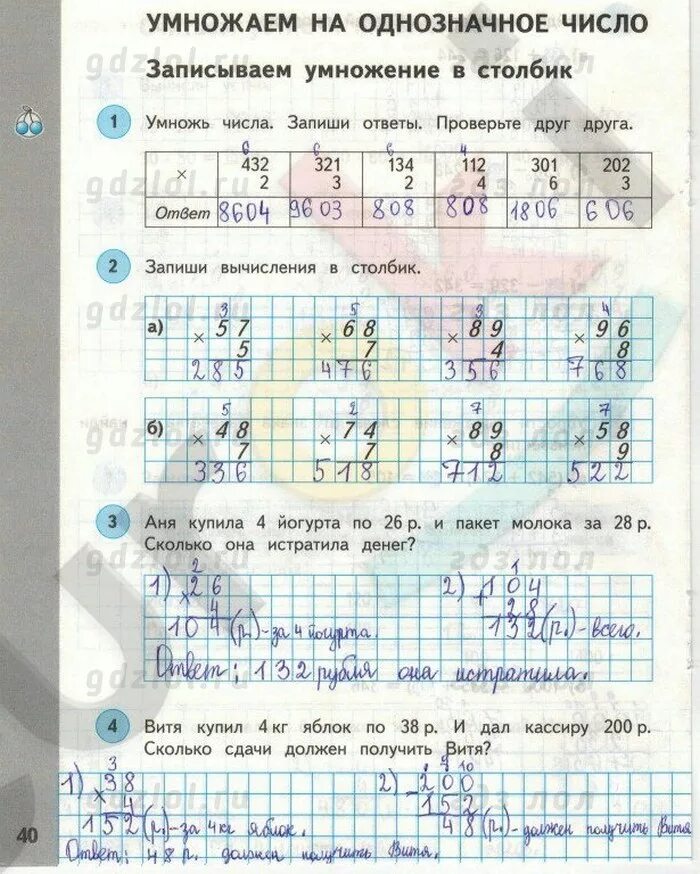 УМНОЖАЕМ НА ОДНОЗНАЧНОЕ ЧИСЛО
Записываем умножение в столбик
1 Умножь числа. Запиши ответы. Проверьте друг друга.
6 6 6 4
× 432 321 134 112 301 202
2 3 2 4 6 3
Ответ 8604 9603 808 808 1806 606
2 Запиши вычисления в столбик.
3 5 3 4
а) × 57 × 68 × 89 × 96
5 7 4 8
285 476 356 768
5 2 7 7
б) × 48 × 74 × 89 × 58
7 7 8 9
336 518 712 522
3 Аня купила 4 йогурта по 26 р. и пакет молока за 28 р.
Сколько она истратила денег?
2 1
1) × 26 2) + 104
4 28
104 (р.) - за 4 йогурта. 132 (р.) - всего.
Ответ: 132 рубля она истратила.
4 Витя купил 4 кг яблок по 38 р. И дал кассиру 200 р.
Сколько сдачи должен получить Витя?
3 9 10
1) × 38 2) - 200
4 152
152 (р.) - за 4 кг яблок. 48 (р.) - должен получить Витя
Ответ: 48 р. должен получить Витя.
40
gdzlol.ru
гдз лол